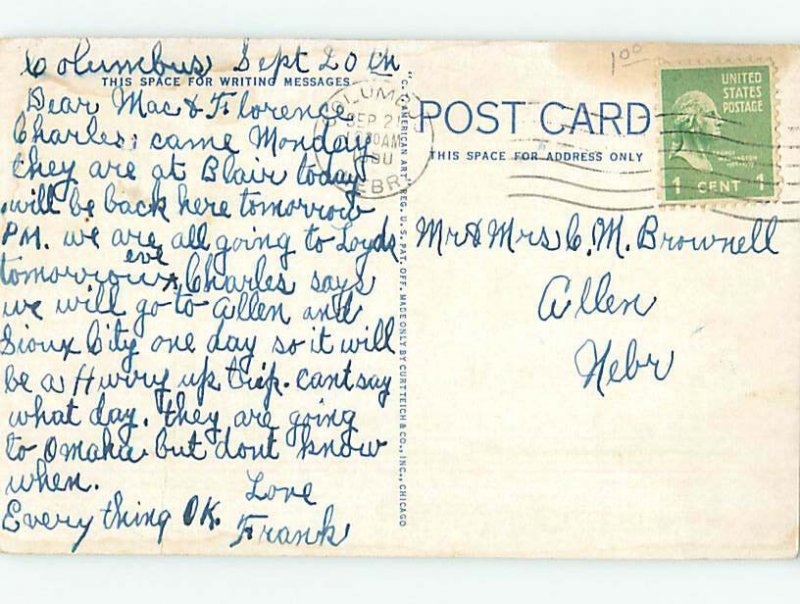 Columbus Sept 20th
THIS SPACE FOR WRITING MESSAGES
Dear Mac & Florence
Charles; came Monday
they are at Blair today
will be back here tomorrow
PM. we are all going to Loyds
tomorrow eve Charles says
we will go to Allen and
Sioux City one day so it will
be a Hurry up trip. cant say
what day. they are going
to Omaha but dont know
when.
Love
Every thing OK.
Frank
"C.T. AMERICAN ART" REG. U.S. PAT. OFF. MADE ONLY BY CURT TEICH & CO., INC., CHICAGO
COLUMBUS
SEP 21
AM
NEBR
1 00
POST CARD
THIS SPACE FOR ADDRESS ONLY
UNITED
STATES
POSTAGE
1 CENT 1
Mr & Mrs C. M. Brownell
Allen
Nebr